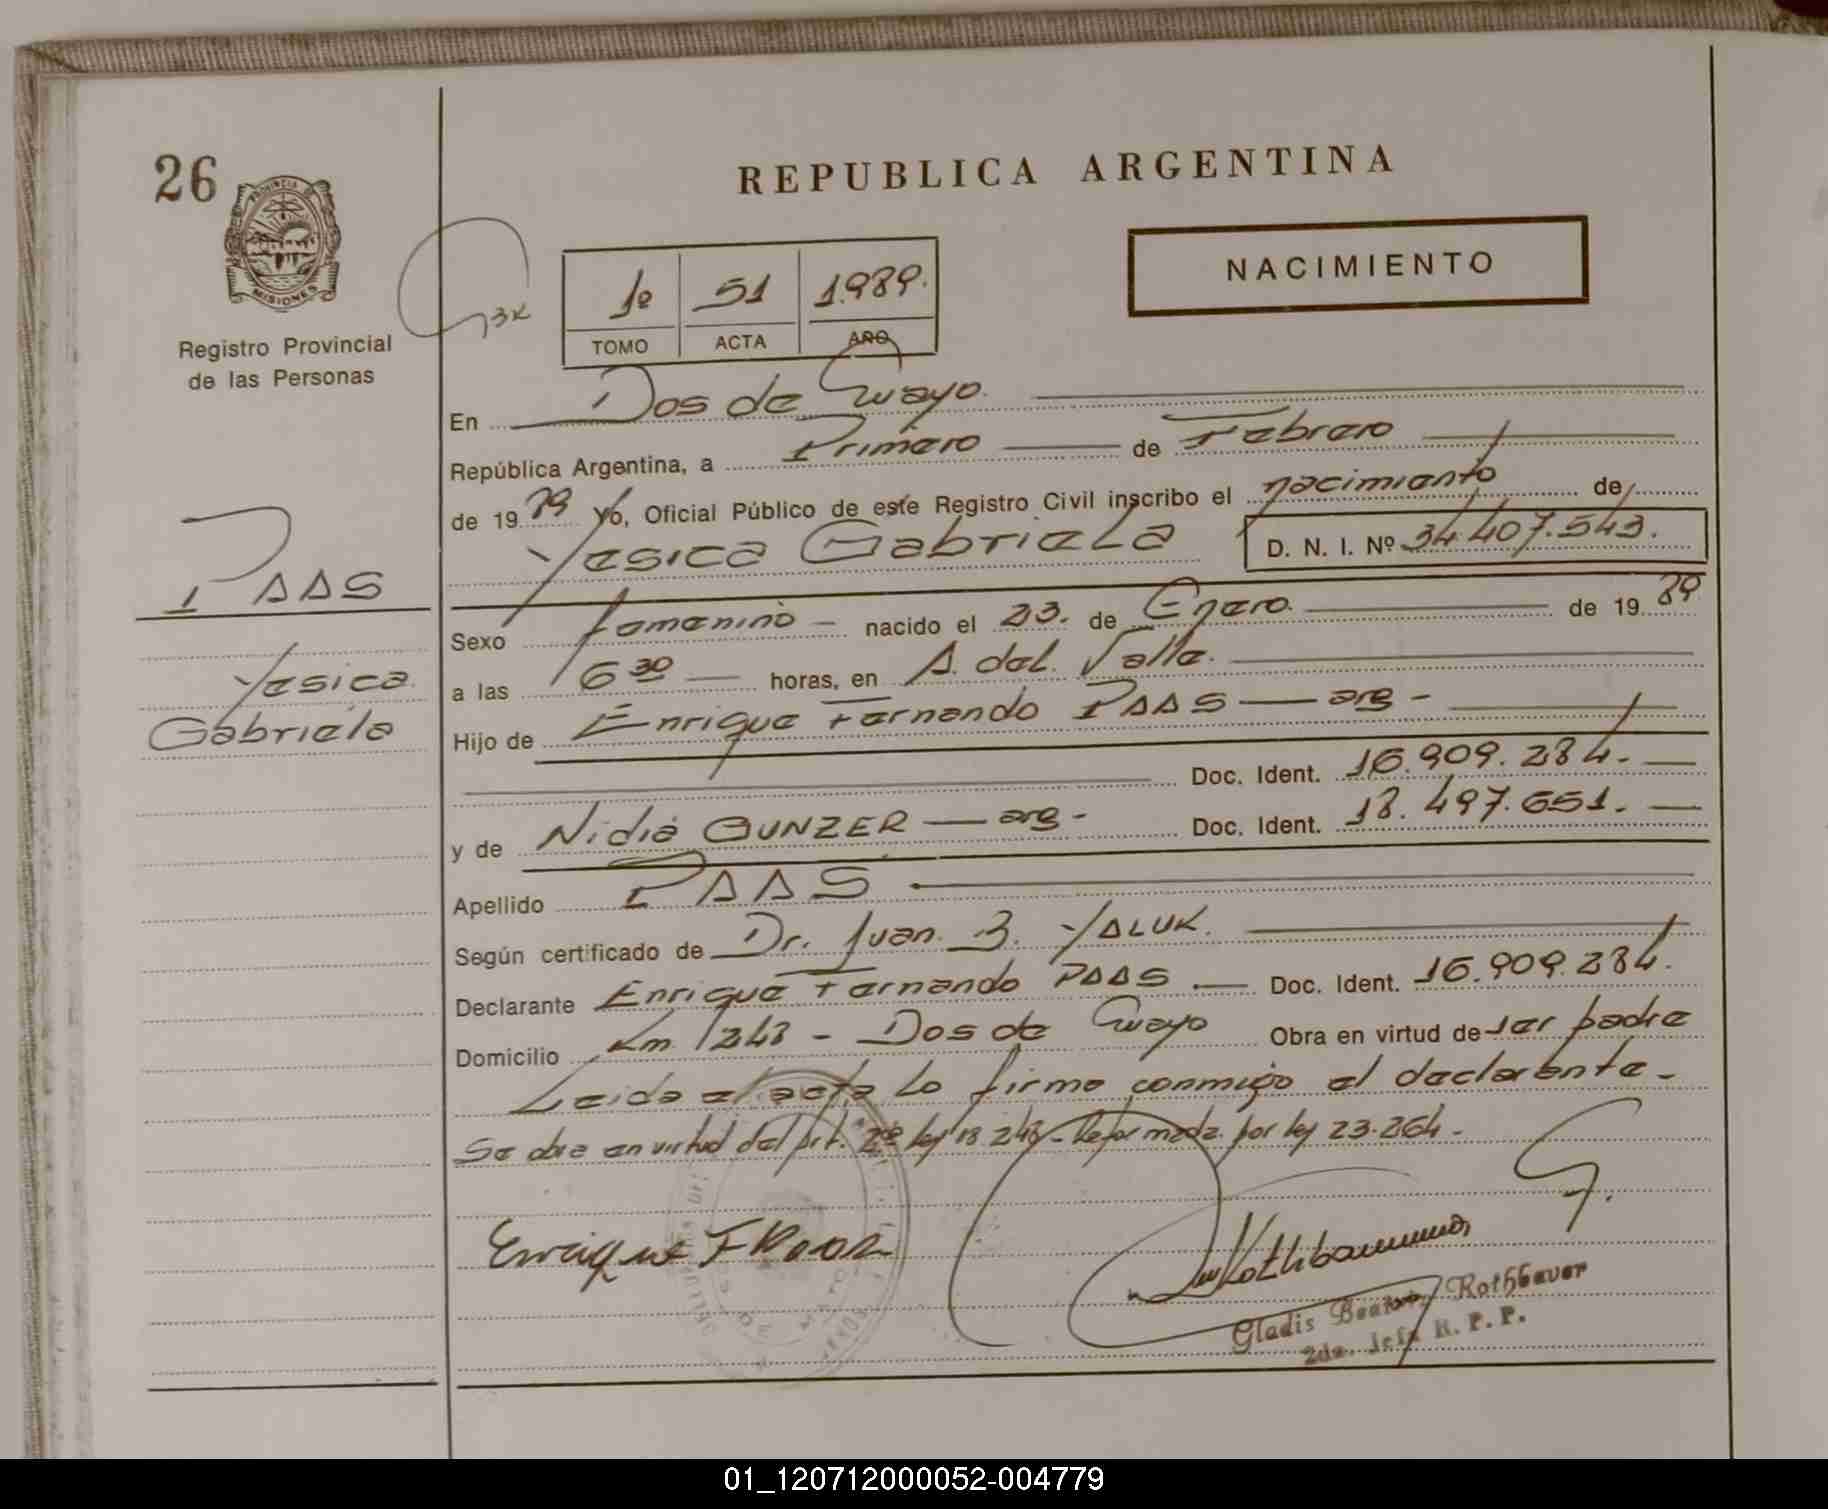 26
PROVINCIA DE
MISIONES
Registro Provincial
de las Personas
REPUBLICA ARGENTINA
NACIMIENTO
1º 51 1.989.
TOMO ACTA AÑO
En Dos de Mayo.
República Argentina, a Primero de Febrero
de 19 89 Yo, Oficial Público de este Registro Civil inscribo el nacimiento de
Yesica Gabriela D. N. I. Nº 34.407.543.
PAAS
Yesica
Gabriela
Sexo femenino - nacido el 23. de Enero. de 19 89
a las 6 30 horas, en A. del. Valle.
Hijo de Enrique Fernando PAAS — arg -
Doc. Ident. 16.909.284.
y de Nidia GUNZER — arg - Doc. Ident. 18.497.651.
Apellido PAAS
Según certificado de Dr. Juan. B. YALUK.
Declarante Enrique Fernando PAAS Doc. Ident. 16.909.284.
Domicilio Km. 1243 - Dos de Mayo Obra en virtud de ser padre
Leida el acta la firma conmigo el declarante -
Se obra en virtud del Art. 2º ley 18.248 - Reformada por ley 23.264 -
Enrique F Paas
Gladis Beatriz Rothbauer
2da. Jefa R. P. P.
01_120712000052-004779